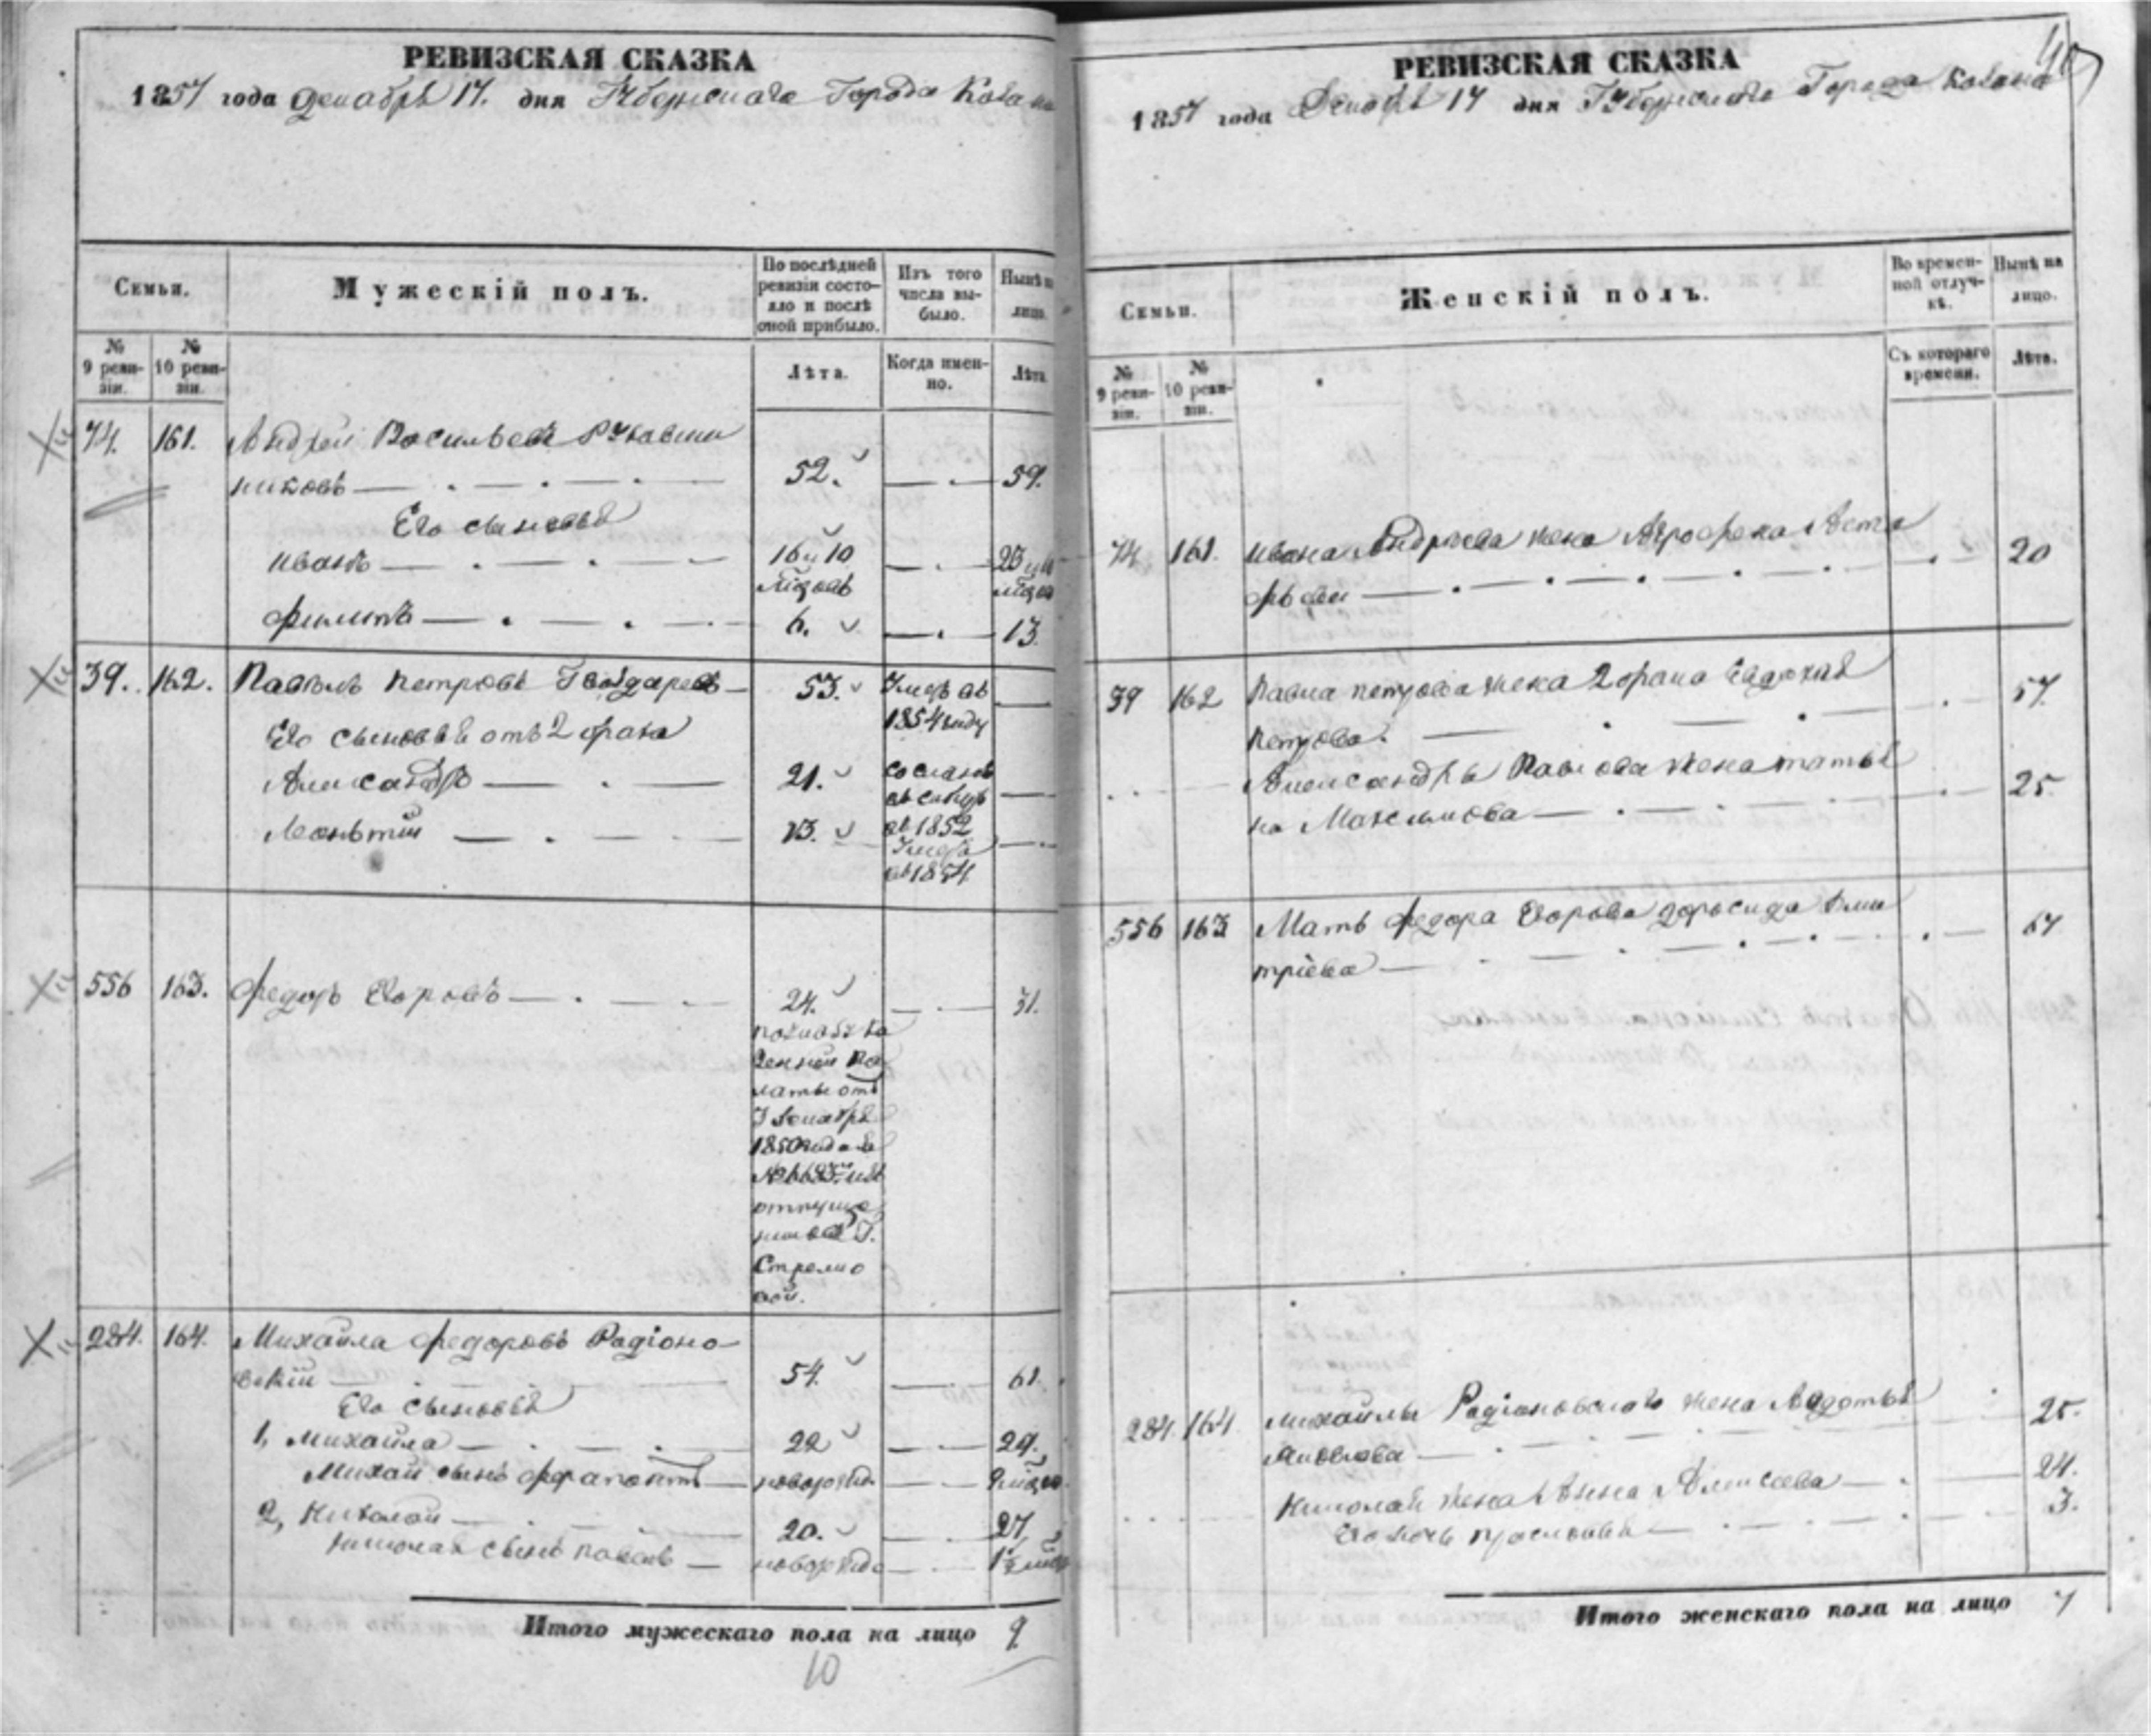 РЕВИЗСКАЯ СКАЗКА
1857 года Декабря 17. дня Губернскаго Города Ковна
Семьи.
Мужескій полъ.
По послѣдней ревизіи состояло и послѣ оной прибыло.
Изъ того числа выбыло.
Нынѣ на лицо.
№ 9 ревизіи.
№ 10 ревизіи.
Лѣта.
Когда именно.
Лѣта.
74. 161. Андрей Васильевъ Рукавиш
никовъ 52. 59.
Его сыновья
Иванъ 16 и 10 мѣсяцъ
Филипъ 6. 13.
39. 162. Павелъ Петровъ 53. Умеръ въ 1854 году
Его сыновья отъ 2 брака
Александръ 21. сосланъ въ сибирь въ 1852
Леонтій 13. Умеръ въ 1854
556 163. Федоръ Егоровъ 24. 31.
по указу Ка
зенной Па
латы отъ
7 Декабря
1850 года за
№ изъ
отпущен
ныхъ Г.
284. 164. Михайла Федоровъ Радіоно
вскій 54. 61.
Его сыновья
1, Михайла 22 29.
Михайлы сынъ Ферапонтъ новорожд.
2, Николай 20. 27
Николая сынъ Павелъ новорожд
Итого мужескаго пола на лицо 9
10
РЕВИЗСКАЯ СКАЗКА
1857 года Декабря 17 дня Губернскаго Города Ковна
Семьи.
Женскій полъ.
Во временной отлучкѣ.
Нынѣ на лицо.
№ 9 ревизіи.
№ 10 ревизіи.
Съ котораго времени.
Лѣта.
74 161. Ивана Андреева жена Агрофена Аста
фьева 20
39 162 Павла Петрова жена 2 брака Евдокія 57.
Петрова.
Александра Павлова жена Татья
на Максимова 25.
556 163 Мать Федора Егорова Дми 67
тріева
284. 164. Михайлы Радіоновскаго жена Авдотья 25.
Яковлева
Николая жена Анна Алексеева 24.
Его дочь Прасковья 3.
Итого женскаго пола на лицо 7